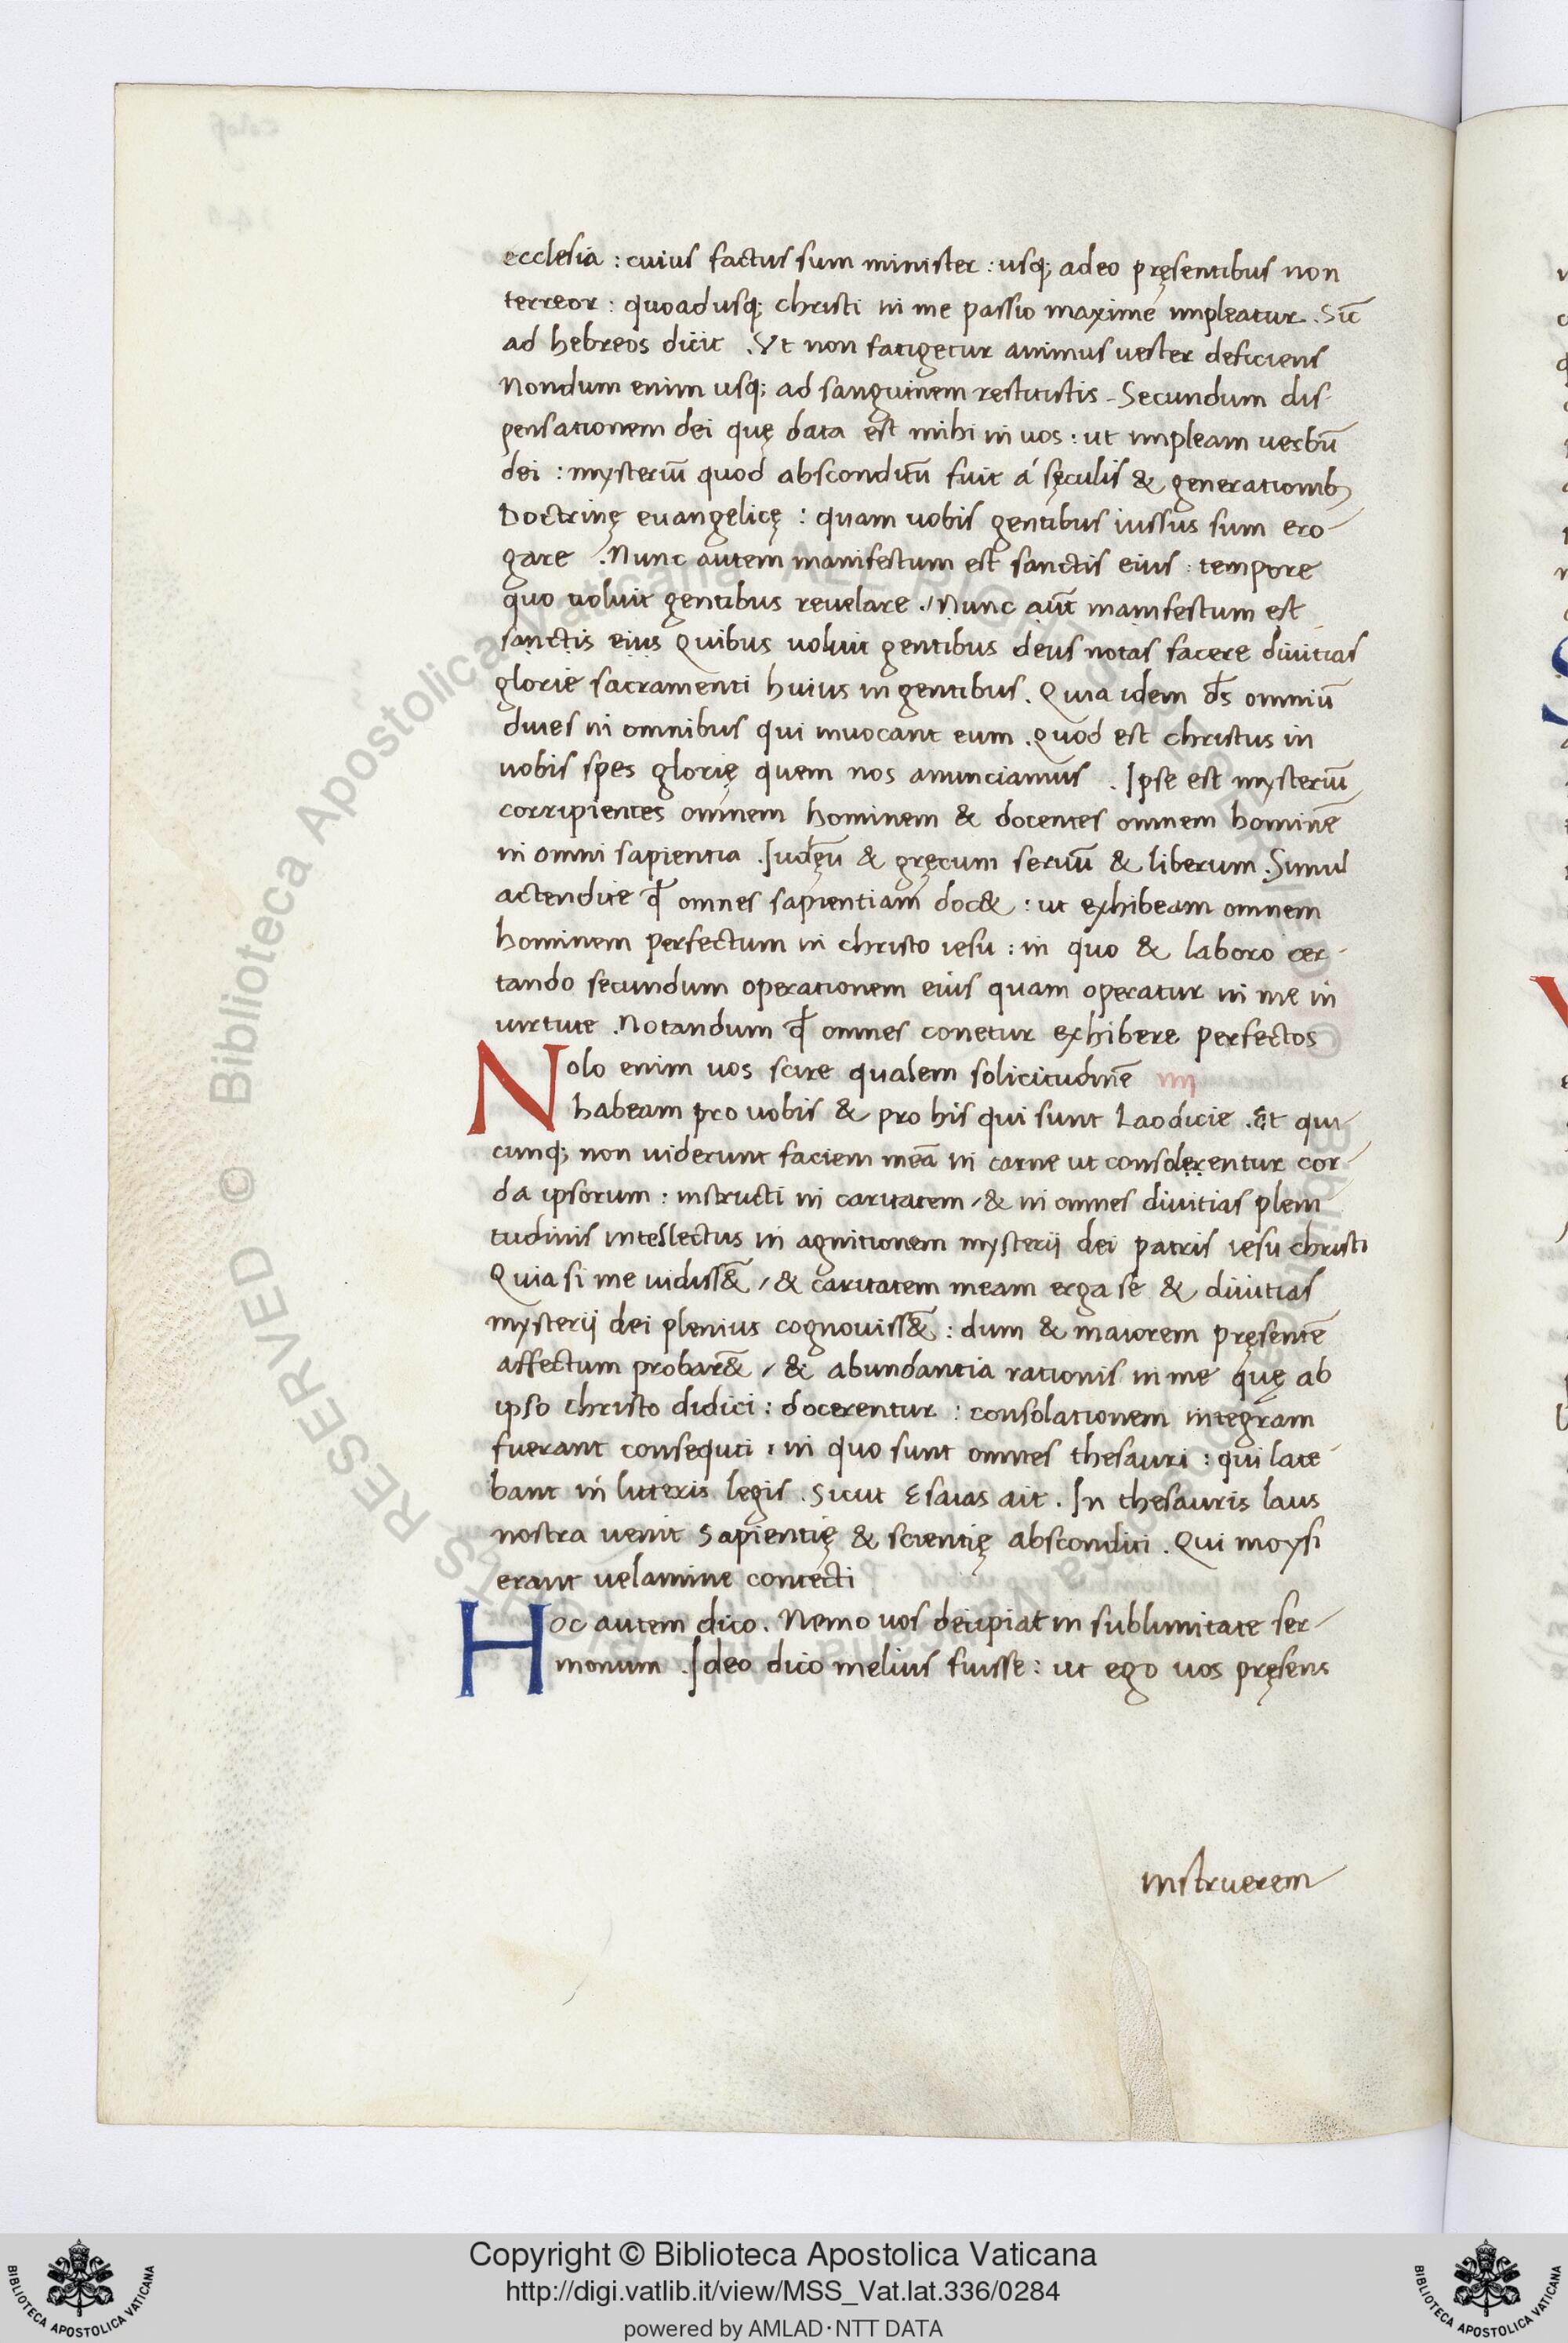 ecclesia : cuius factus sum minister : usq; adeo pręsentibus non
terreor : quoadusq; christi in me passio maxime impleatur . Sic̄
ad hebreos dicit . Vt non fatigetur animus uester deficiens
Nondum enim usq; ad sanguinem restitistis . Secundum dis
pensationem dei quę data est mihi in uos : ut impleam uerbū
dei : mysteriū quod absconditū fuit á sęculis & generationib;
Doctrinę euangelicę : quam uobis gentibus iussus sum ero-
gare . Nunc autem manifestum est sanctis eius : tempore
quo uoluit gentibus reuelare . Nunc aūt manifestum est
sanctis eius Quibus uoluit gentibus deus notas facere diuitias
glorie sacramenti huius in gentibus . Quia idem d̄s omniū
diues in omnibus qui inuocant eum . Quod est christus in
uobis spes glorię quem nos anunciamus . Ipse est mysteriū
corripientes omnem hominem & docentes omnem hominē
in omni sapientia . Iudęū & gręcum seruū & liberum . Simul
actendite qd̄ omnes sapientiam doc& : ut exhibeam omnem
hominem perfectum in christo iesu : in quo & laboro cer-
tando secundum operationem eius quam operatur in me in
uirtute . Notandum qd̄ omnes conetur exhibere perfectos
Nolo enim uos scire qualem solicitudinē
habeam pro uobis & pro his qui sunt Laodicie . Et qui-
cunq; non uiderunt faciem meā in carne ut consolerentur cor-
da ipsorum : instructi in caritatem / & in omnes diuitias pleni
tudinis intellectus in agnitionem mysterij dei patris iesu christi
Quia si me uidiss&̄ / & caritatem meam erga se & diuitias
mysterij dei plenius cognouiss&̄ : dum & maiorem pręsentē
affectum probar&̄ / & abundantia rationis in me quę ab
ipso christo didici : docerentur : consolationem integram
fuerant consequti : in quo sunt omnes thesauri : qui late-
bant in litteris legis . Sicut Esaias ait . In thesauris laus
nostra uenit Sapientię & scientię absconditi . Qui moysi
erant uelamine contecti
Hoc autem dico . Nemo uos decipiat in sublimitate ser-
monum . Ideo dico melius fuisse : ut ego uos pręsens
instruerem
Copyright © Biblioteca Apostolica Vaticana
http://digi.vatlib.it/view/MSS_Vat.lat.336/0284
powered by AMLAD·NTT DATA
BIBLIOTECA APOSTOLICA VATICANA
BIBLIOTECA APOSTOLICA VATICANA